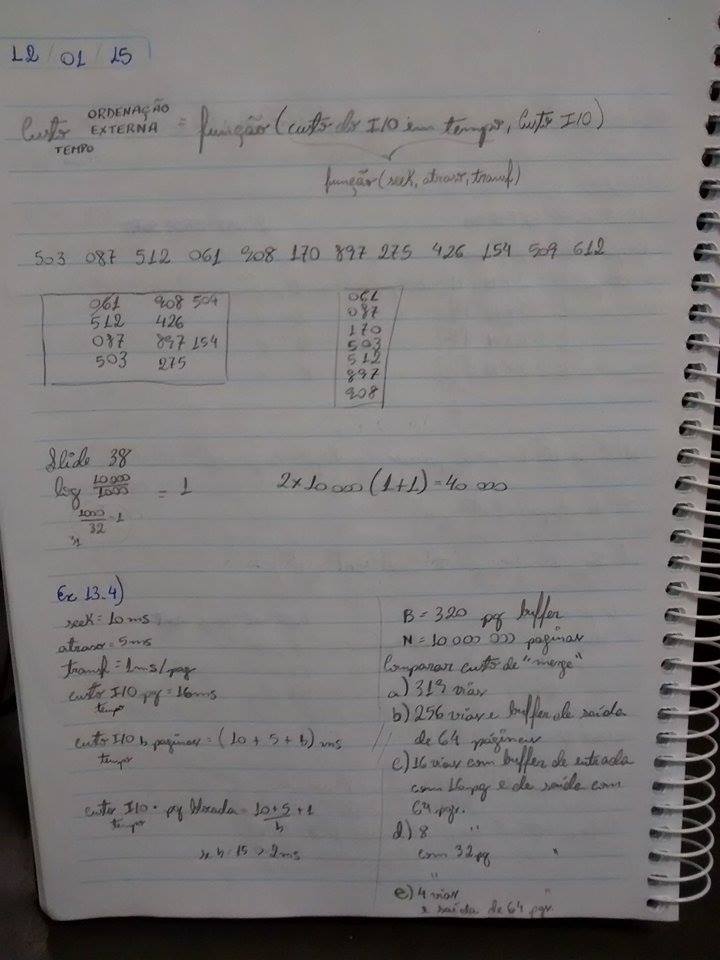 12/01/15
Custo ORDENAÇÃO EXTERNA = função (custo do I/O em tempo, Custo I/O)
TEMPO
função (seek, atraso, transf)
503 087 512 061 908 170 897 275 426 154 509 612
061 908 509
512 426
087 897 154
503 275
061
087
170
503
512
897
908
Slide 38
log 10000/1000 = 1
1000/32 - 1
31
2 x 10 000 (1+1) = 40 000
Ex 13.4)
seek = 10 ms
atraso = 5 ms
transf = 1 ms/pag
custo I/O pg = 16 ms
tempo
custo I/O b paginas = (10 + 5 + b) ms
tempo
custo I/O pg blocada = 10+5/b + 1
tempo
se b = 15 > 2 ms
B = 320 pg buffer
N = 10 000 000 paginas
Comparar custo de "merge"
a) 319 vias
b) 256 vias e buffer de saída
de 64 páginas
c) 16 vias com buffer de entrada
com 16 pg e de saída com
64 pgs.
d) 8 "
com 32 pg "
"
e) 4 vias "
e saída de 64 pgs.